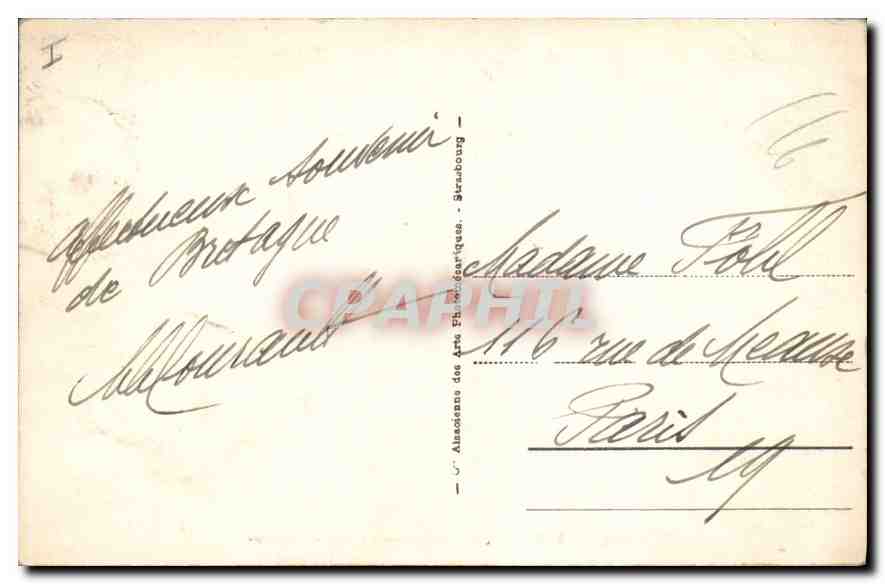 I
affectueux souvenir
de Bretagne
Sté Alsacienne des Arts Photomécaniques. - Strasbourg
CPAPHIL
Madame Pohl
116 rue de Meause
Paris
19